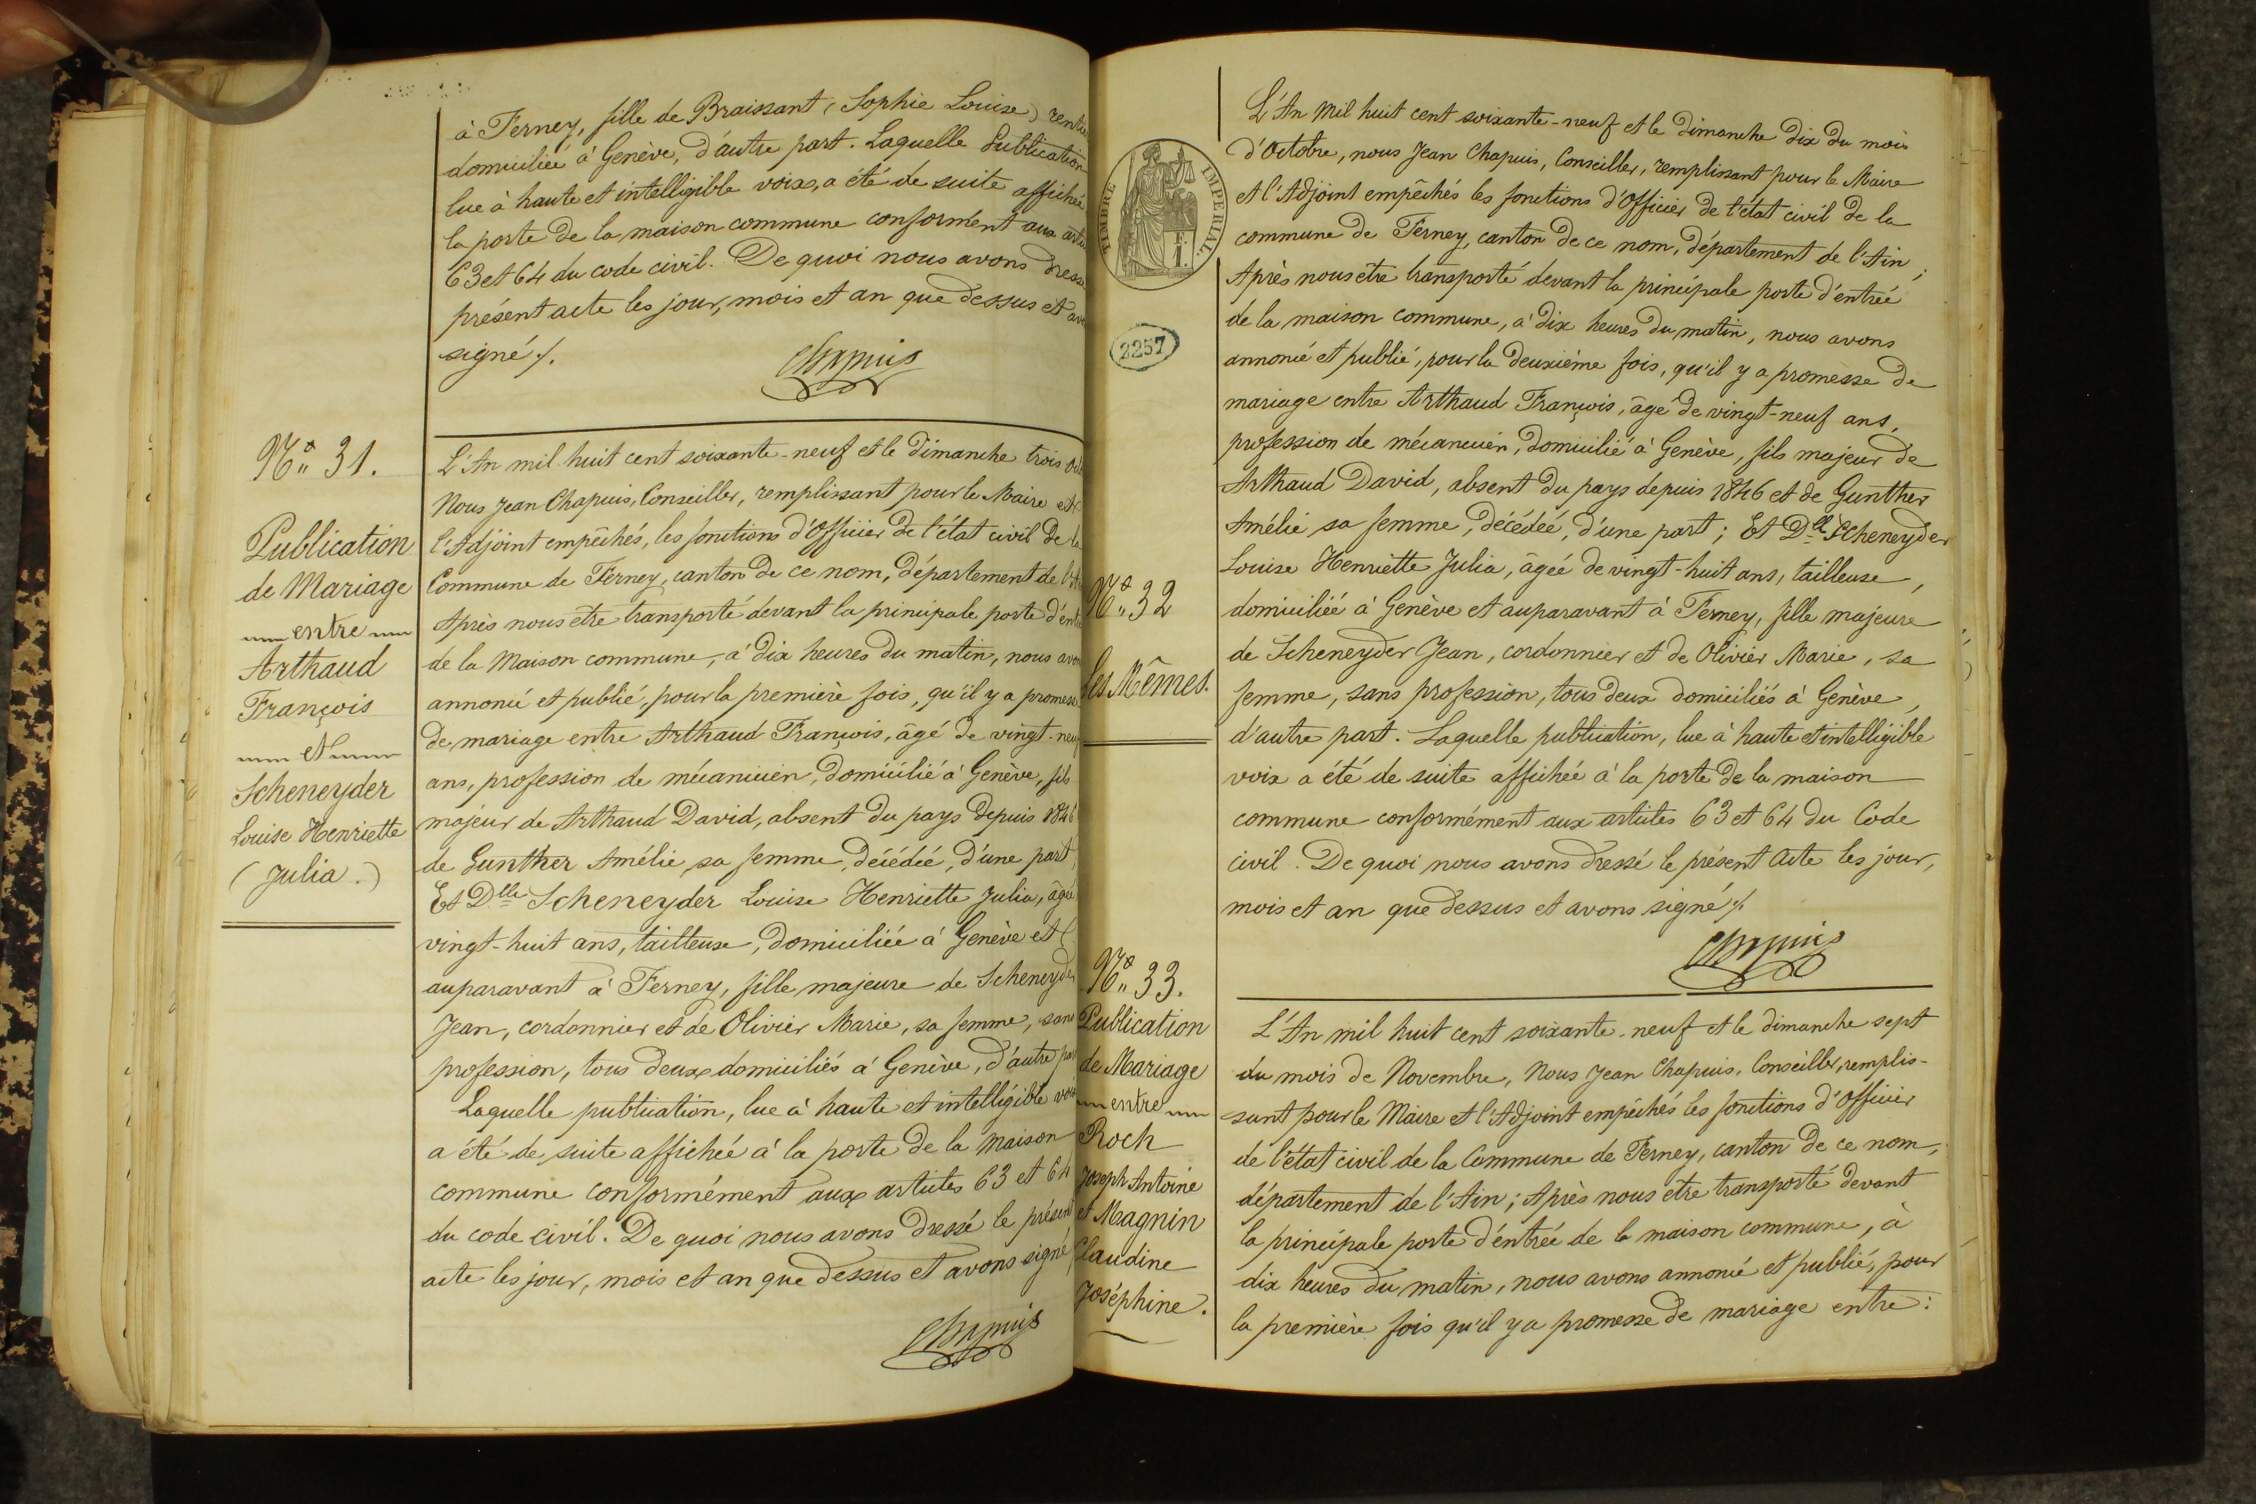 à Ferney, fille de Braissant (Sophie Louise) rentiè
domiciliée à Genève, d'autre part. Laquelle Publication
lue à haute et intelligible voix, a été de suite affichée
la porte de la maison commune conformént aux arti
63 et 64 du code civil. De quoi nous avons dressé
présent acte les jour, mois et an que dessus et avo
signé /.
Chapuis
N° 31.
Publication
de Mariage
entre
Arthaud
François
et
Scheneyder
Louise Henriette
(Julia.)
L'An mil huit cent soixante-neuf et le dimanche trois Octo
Nous Jean Chapuis, Conseiller, remplissant pour le Maire et
l'Adjoint empêchés, les fonctions d'Officier de l'état civil de la
Commune de Ferney, canton de ce nom, département de l'Ain
Après nous être transporté devant la principale porte d'entré
de la Maison commune, à dix heures du matin, nous avon
annoncé et publié, pour la première fois, qu'il y a promesse
de mariage entre Arthaud François, âgé de vingt-neuf
ans, profession de mécanicien, domicilié à Genève, fils
majeur de Arthaud David, absent du pays depuis 1846
de Gunther Amélie sa femme, décédée, d'une part,
Et Dlle Scheneyder Louise Henriette Julia, âgée
vingt-huit ans, tailleuse, domiciliée à Genève et
auparavant à Ferney, fille majeure de Scheneyder
Jean, cordonnier et de Olivier Marie, sa femme, sans
profession, tous deux domiciliés à Genève, d'autre part
Laquelle publication, lue à haute et intelligible voix
a été de suite affichée à la porte de la Maison
commune conformément aux articles 63 et 64
du code civil. De quoi nous avons dressé le présent
acte les jour, mois et an que dessus et avons signé
Chapuis
TIMBRE IMPERIAL.
1 F.
2257
N° 32
Les Mêmes.
L'An mil huit cent soixante-neuf et le dimanche dix du mois
d'Octobre, nous Jean Chapuis, Conseiller, remplissant pour le Maire
et l'Adjoint empêchés les fonctions d'Officier de l'état civil de la
commune de Ferney, canton de ce nom, département de l'Ain;
Après nous être transporté devant la principale porte d'entrée
de la maison commune, à dix heures du matin, nous avons
annoncé et publié, pour la deuxième fois, qu'il y a promesse de
mariage entre Arthaud François, âgé de vingt-neuf ans,
profession de mécanicien, domicilié à Genève, fils majeur de
Arthaud David, absent du pays depuis 1846 et de Gunther
Amélie sa femme, décédée, d'une part; Et Dlle Scheneyder
Louise Henriette Julia, âgée de vingt-huit ans, tailleuse,
domiciliée à Genève et auparavant à Ferney, fille majeure
de Scheneyder Jean, cordonnier et de Olivier Marie, sa
femme, sans profession, tous deux domiciliés à Genève,
d'autre part. Laquelle publication, lue à haute et intelligible
voix a été de suite affichée à la porte de la maison
commune conformément aux articles 63 et 64 du Code
civil. De quoi nous avons dressé le présent acte les jour,
mois et an que dessus et avons signé /.
Chapuis
N° 33.
Publication
de Mariage
entre
Roch
Joseph Antoine
et Magnin
Claudine
Joséphine.
L'An mil huit cent soixante-neuf et le dimanche sept
du mois de Novembre, Nous Jean Chapuis, Conseiller, remplis-
sant pour le Maire et l'Adjoint empêchés les fonctions d'Officier
de l'état civil de la Commune de Ferney, canton de ce nom,
département de l'Ain; Après nous être transporté devant
la principale porte d'entrée de la maison commune, à
dix heures du matin, nous avons annoncé et publié, pour
la première fois qu'il y a promesse de mariage entre: